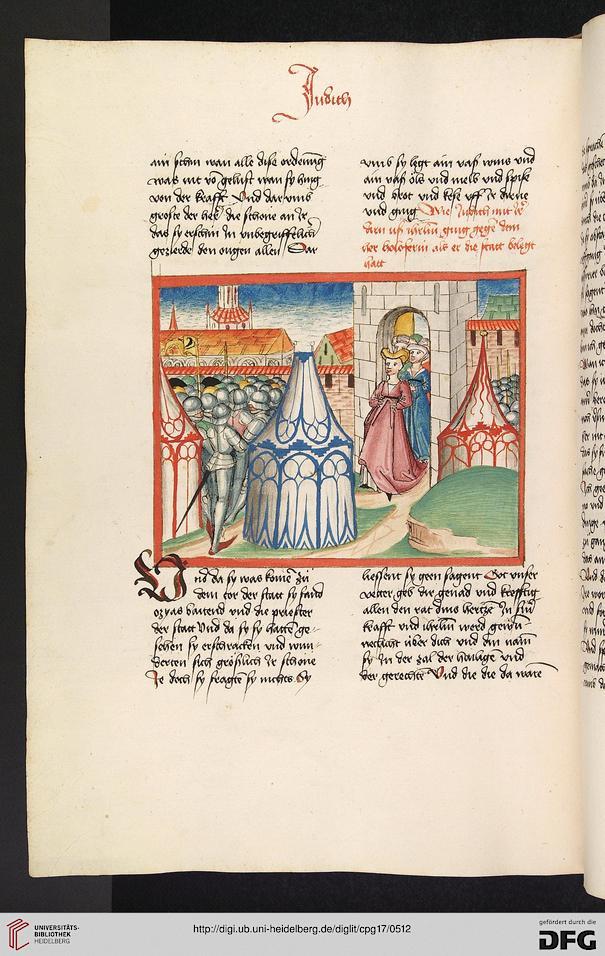 Judith
ain schin wan alle dise ordenung
was nit vo gelust wan sy hing
von der krafft Vnd dar vmb
groste der her die schone an Jr
das sy erschin in vnbegriffelich
gezierde den ougen allen Dar
vmb sy legt ain vas wins vnd
ain vas öls vnd mel vnd spise
vnd brot vnd kese vff Jr dirne
vnd ging Wie Judith mit Jr
dirn vs ging gege dem
her holoferni als er die statt belegt
hatt
Vnd da sy was komē zů
dem tor der statt sy fand
ozyas baitend vnd die priester
der statt Vnd da sy sy hatten ge-
sehen sy erschracken vnd wun-
derten sich gröslich Jr schone
Je doch sy fragte sy nichts Sy
liessent sy geen sagent Got vnser
vetter geb dir genad vnd krefftig
allen den rat dins hertze in sin
krafft vnd werd
über dich vnd din nam
sy in der zal der hailigē vnd
der gerechte Vnd die die da ware
UNIVERSITÄTS-
BIBLIOTHEK
HEIDELBERG
http://digi.ub.uni-heidelberg.de/diglit/cpg17/0512
gefördert durch die
DFG